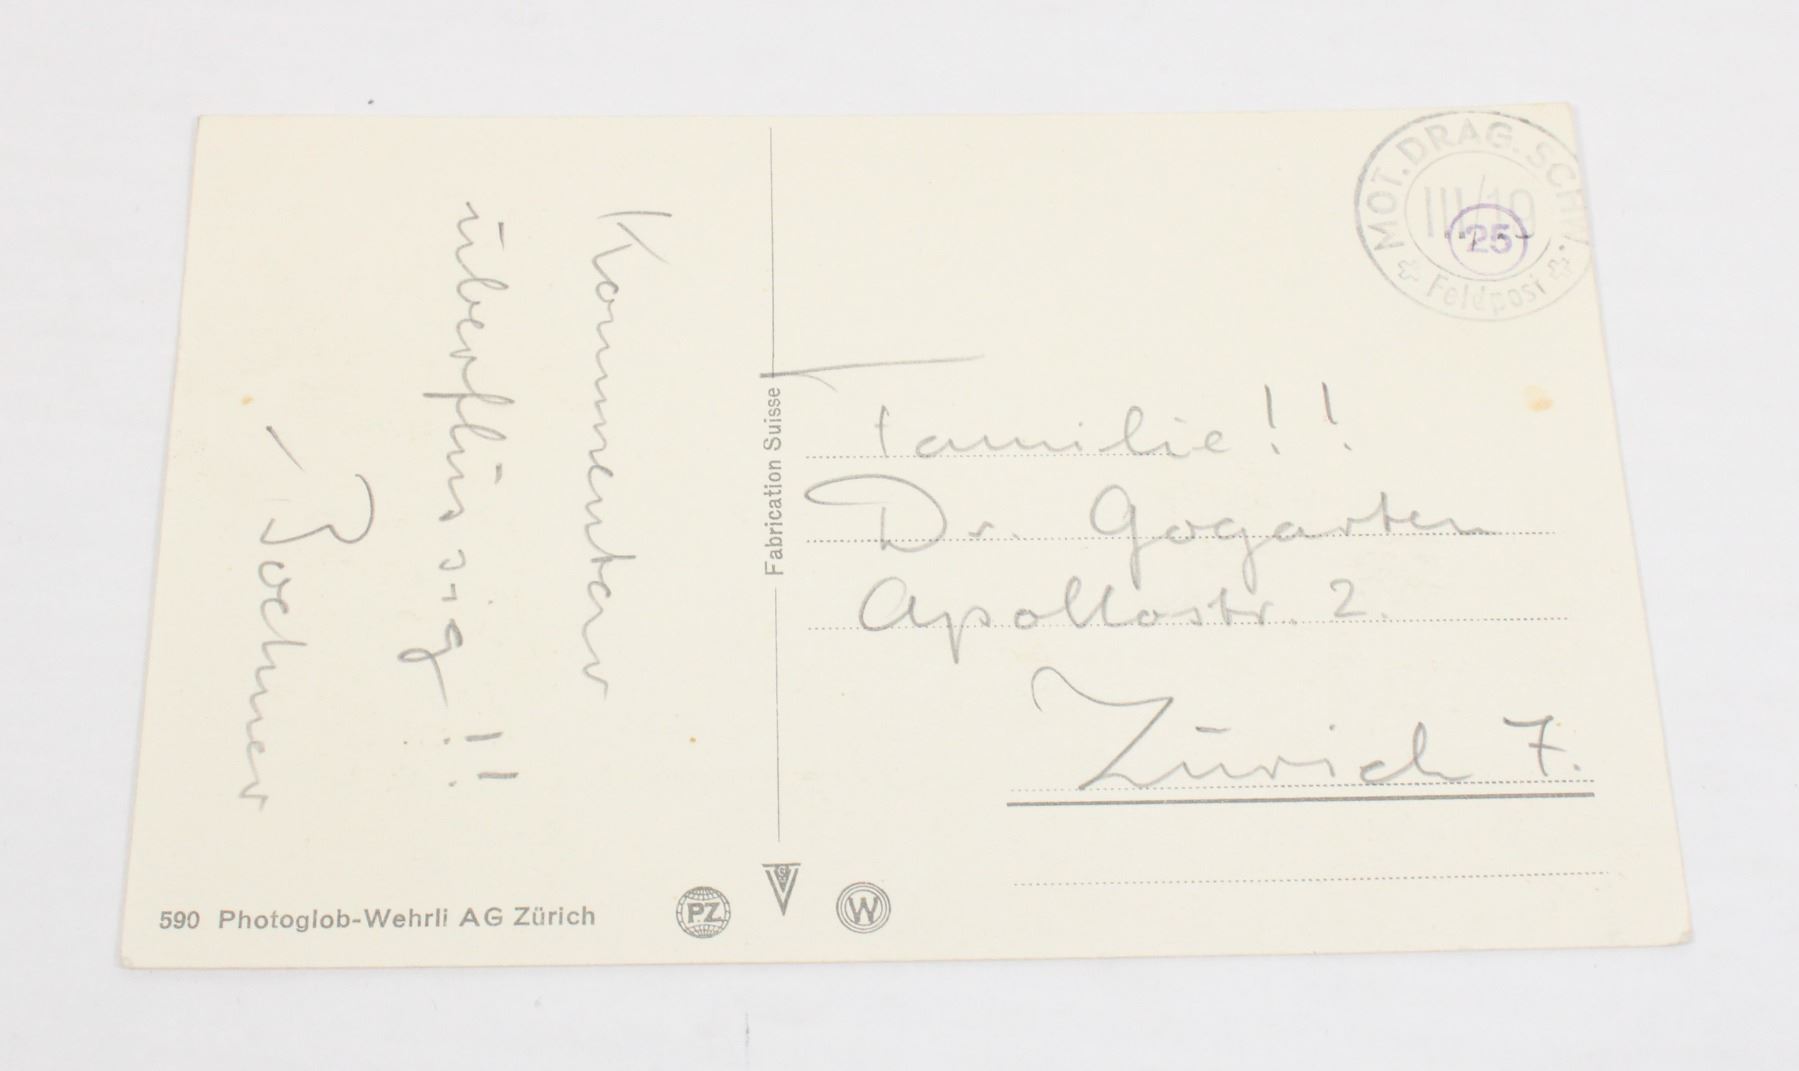 Kommentar
überflüssig!!
Bochner
Fabrication Suisse
MOT. DRAG. SCHW.
III/19
25
Feldpost
Familie!!
Dr. Gogarten
Apollostr. 2.
Zürich 7.
590 Photoglob-Wehrli AG Zürich
PZ
W